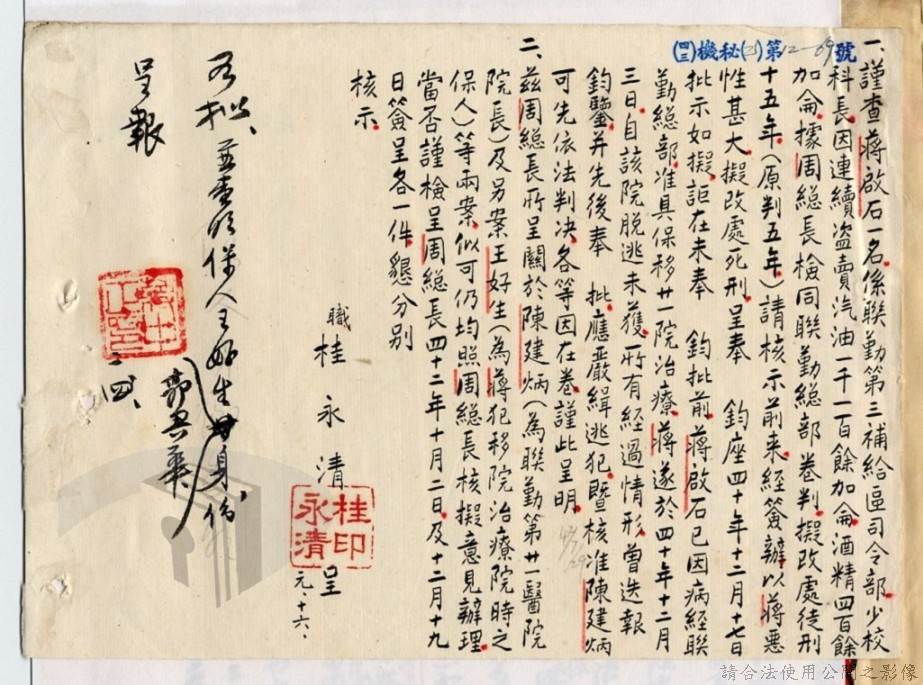 (四三)機秘(乙)第12-69號
一、謹查蔣啟石一名,係聯勤第三補給區司令部少校
科長,因連續盜賣汽油一千一百餘加侖酒精四百餘
加侖,據周總長檢同聯勤總部卷判,擬改處徒刑
十五年,(原判五年)請核示前來,經簽辦以蔣惡
性甚大擬改處死刑,呈奉 鈞座四十年十二月十七日
批示如擬,詎在未奉 鈞批前,蔣啟石已因病經聯
勤總部准具保移廿一院治療,蔣遂於四十年十二月
三日,自該院脫逃未獲,所有經過情形,曾迭報
鈞鑒,并先後奉 批應嚴緝逃犯,暨核准陳建炳
可先依法判決,各等因在卷,謹此呈明。
二、茲周總長所呈關於陳建炳(為聯勤第廿一醫院
院長)及另案王好生(為蔣犯移院治療院時之
保人)等兩案,似可仍均照周總長核擬意見辦理,
當否謹檢呈周總長四十二年十月二日,及十二月十九
日簽呈各一件,懇分別
核示。
職 桂永清 呈
桂永清印
元、十六、
如擬、並查明保人王好生出身、份
呈報
二、四、
請合法使用公開之影像